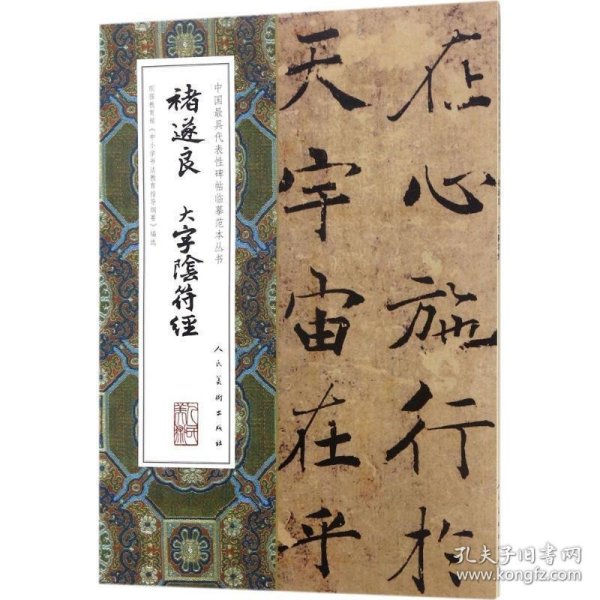 在心施行於
天宇宙在乎
中国最具代表性碑帖临摹范本丛书
褚遂良 大字陰符經
教育部《中小学书法教育指导纲要》编选
人民美術出版社
孔夫子旧书网
www.kongfz.com